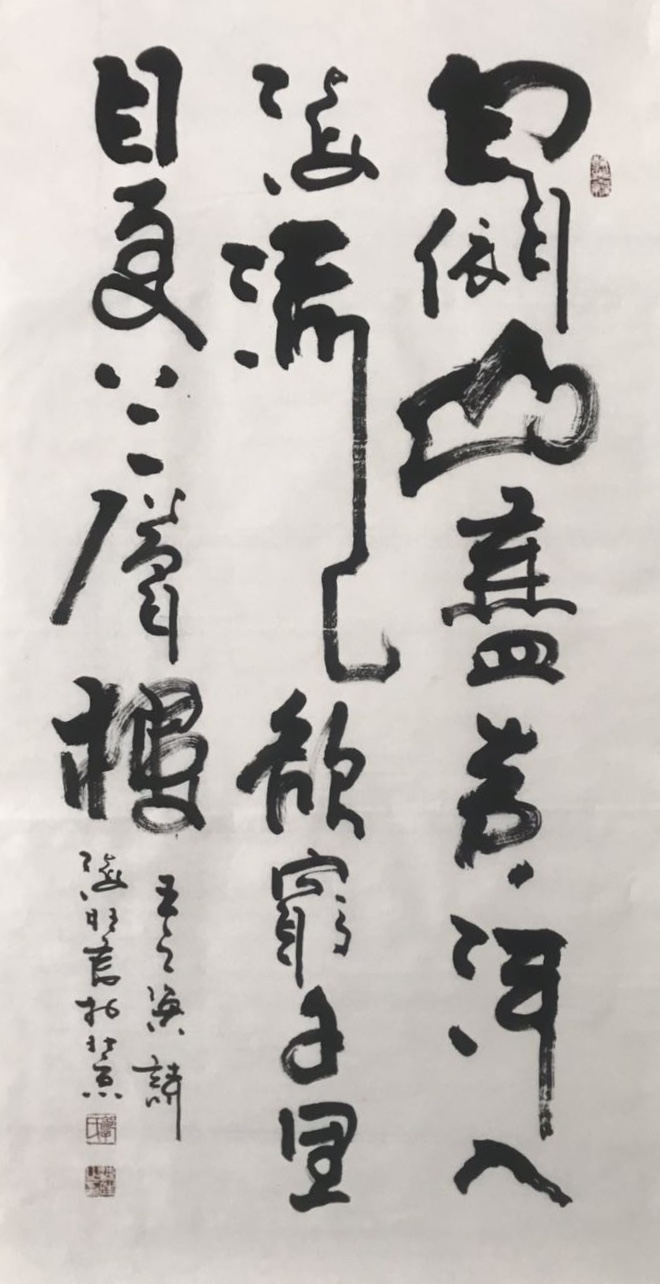 白日依山盡黃河入
海流欲窮千里
目更上一層樓
王之渙詩
海旺書於北京